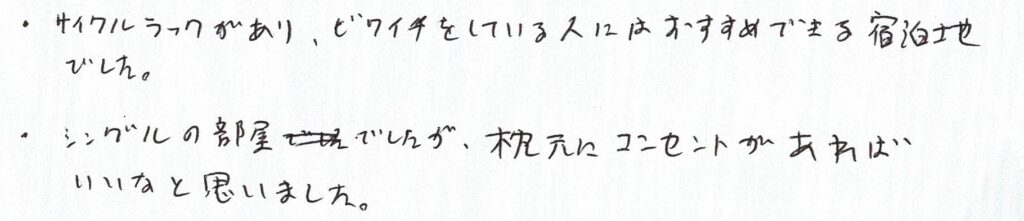 ・サイクルラックがあり、ビワイチをしている人にはおすすめできる宿泊地
でした。
・シングルの部屋でしたが、枕元にコンセントがあれば
いいなと思いました。